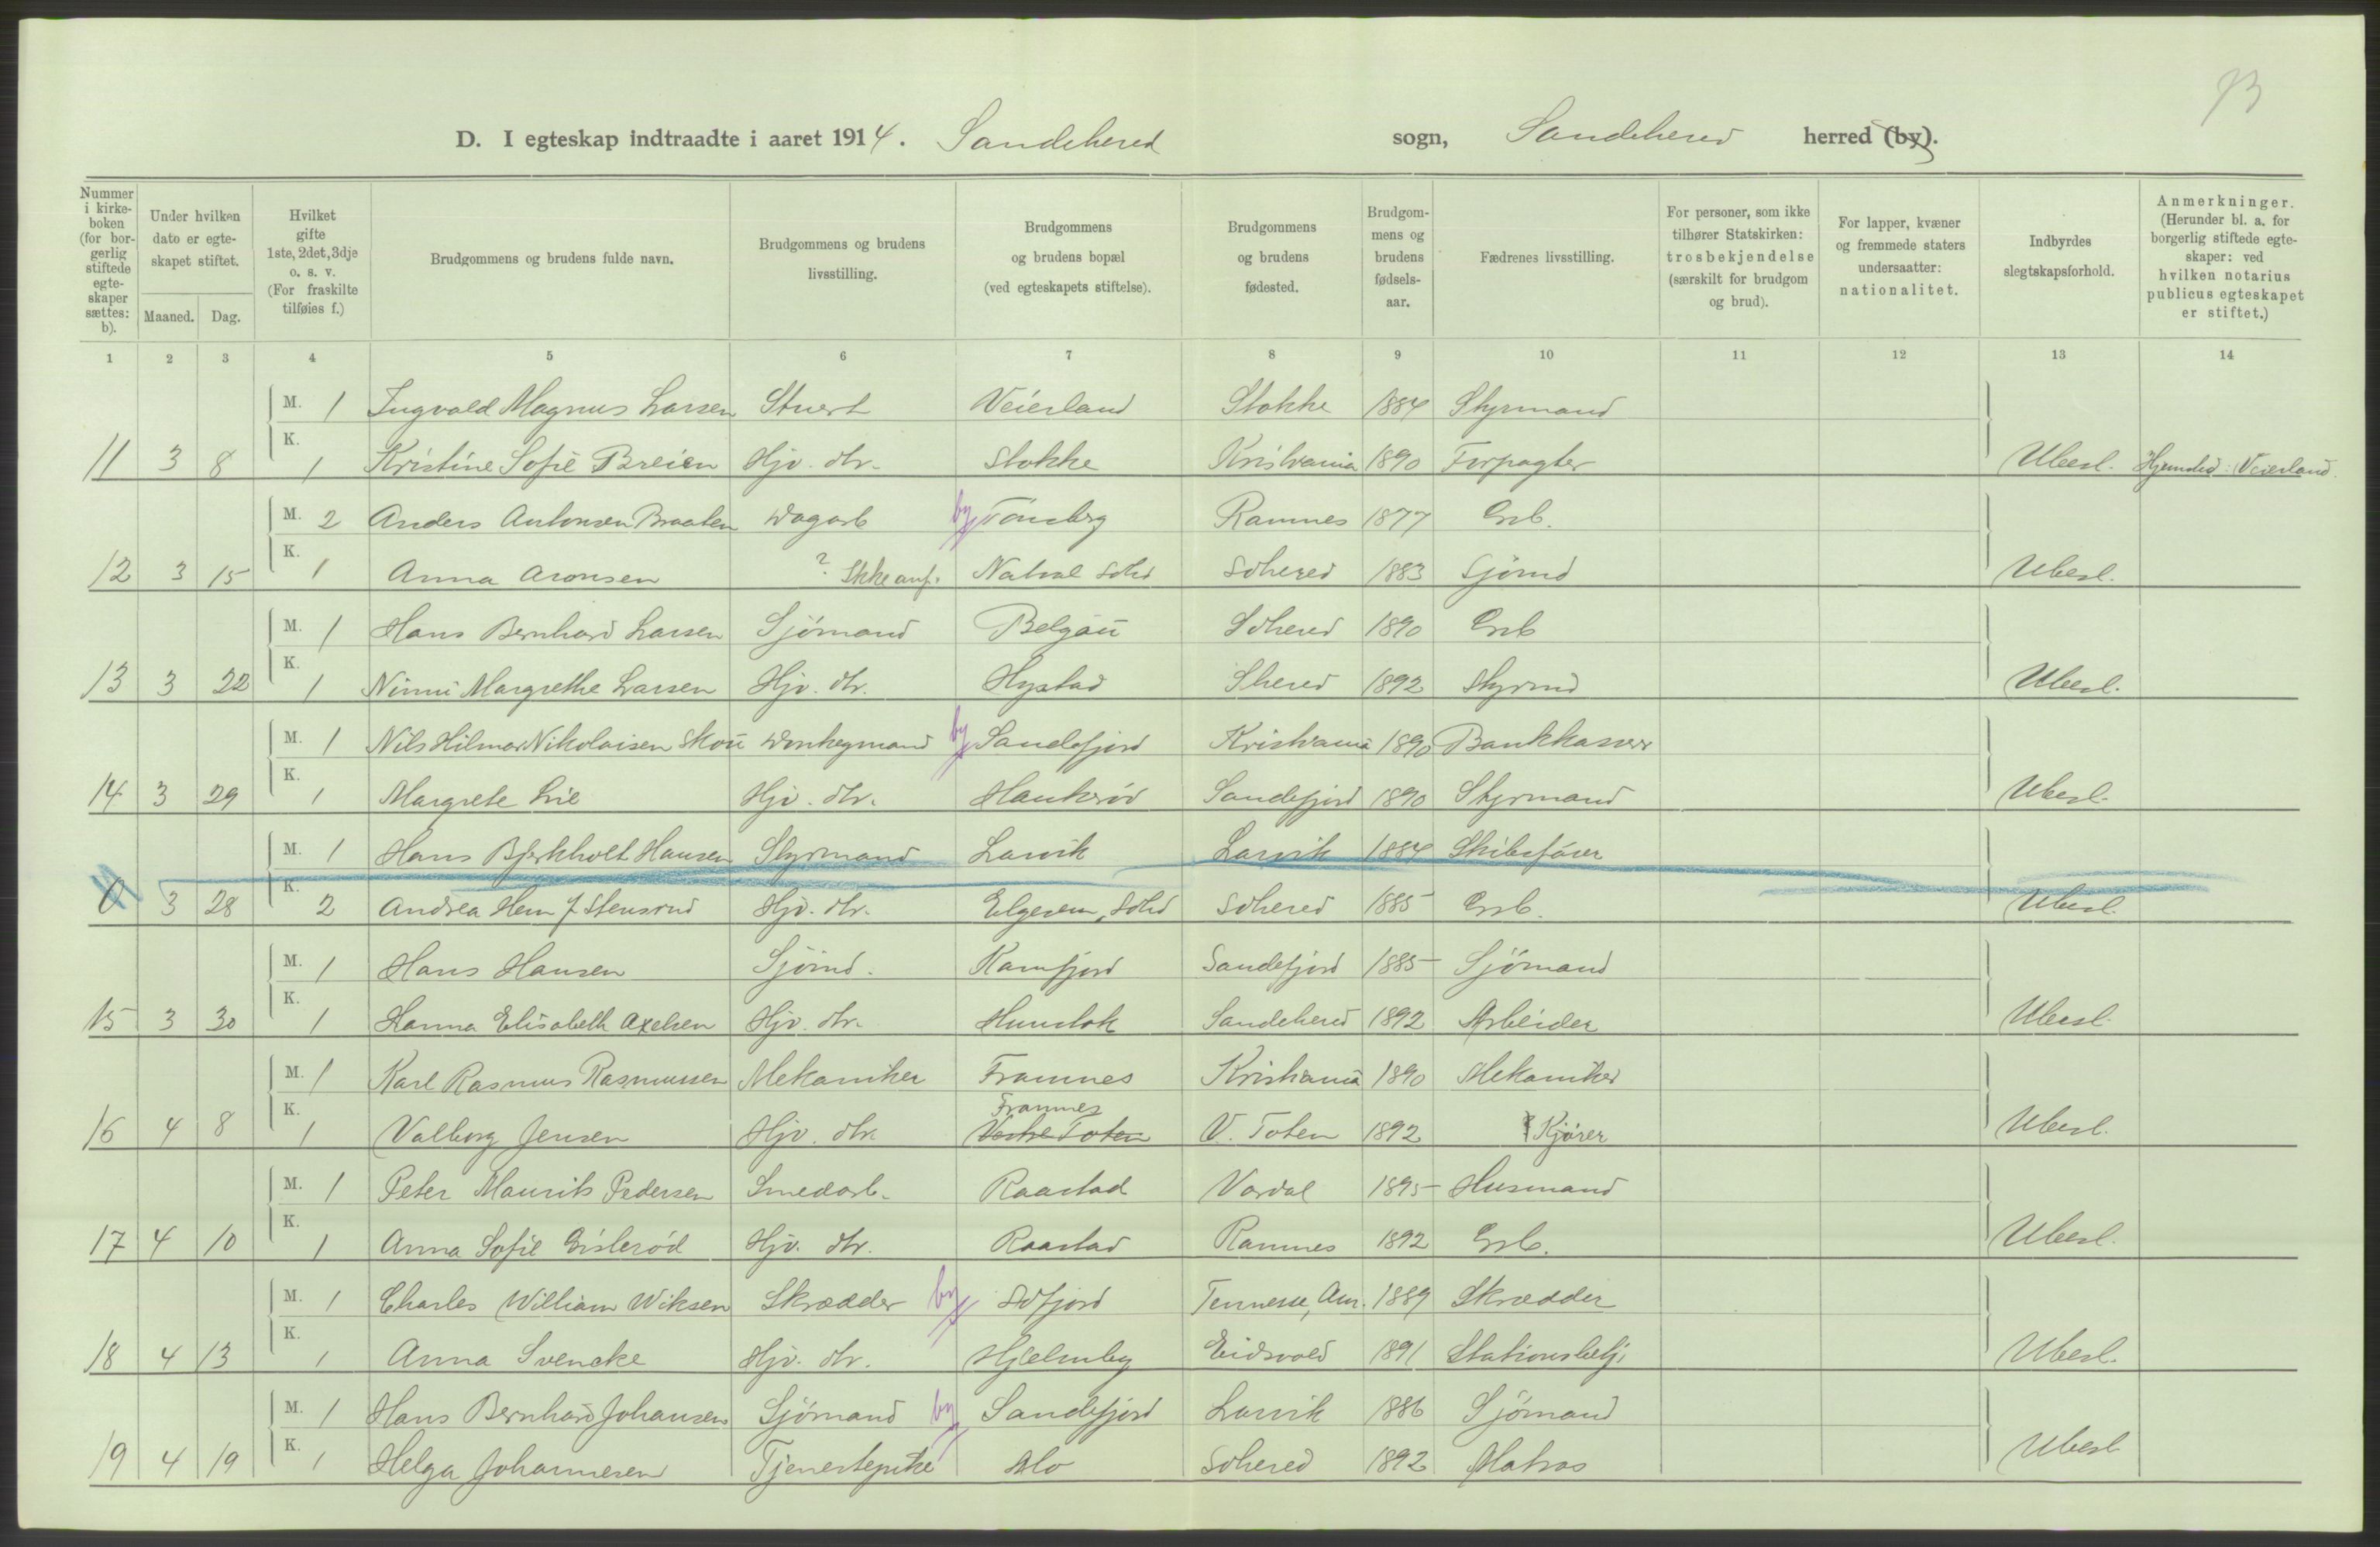 73
D. I egteskap indtraadte i aaret 1914. Sandehered sogn, Sandehered herred (by).
Nummer i kirkeboken (for borgerlig stiftede egteskaper sættes: b).
Under hvilken dato er egteskapet stiftet.
Maaned. Dag.
Hvilket gifte 1ste, 2det, 3dje o. s. v. (For fraskilte tilføies f.)
Brudgommens og brudens fulde navn.
Brudgommens og brudens livsstilling.
Brudgommens og brudens bopæl (ved egteskapets stiftelse).
Brudgommens og brudens fødested.
Brudgommens og brudens fødselsaar.
Fædrenes livsstilling.
For personer, som ikke tilhører Statskirken: trosbekjendelse (særskilt for brudgom og brud).
For lapper, kvæner og fremmede staters undersaatter: nationalitet.
Indbyrdes slegtskapsforhold.
Anmerkninger. (Herunder bl. a. for borgerlig stiftede egteskaper: ved hvilken notarius publicus egteskapet er stiftet.)
1 2 3 4 5 6 7 8 9 10 11 12 13 14
M. 1 Ingvald Magnus Larsen Stuert Veierland Stokke 1884 Styrmand
11 3 8 K. 1 Kristine Sofie Breien Hjv. dtr. Stokke Kristiania 1890 Forpagter Ubesl. Veierland
M. 2 Anders Antonsen Braaten Dagarb by Tönsberg Ramnes 1877 Grb.
12 3 15 K. 1 Anna Aronsen ? Ikke anf. Natval Sdhd Sdhered 1883 Sjömd Ubesl.
M. 1 Hans Bernhard Larsen Sjömand Belgau Sdhered 1890 Grb
13 3 22 K. 1 Ninni Margrethe Larsen Hjv. dtr. Hystad Shered 1892 Styrmd Ubesl.
M. 1 Nils Hilmar Nikolaisen Skou by Sandefjord Kristiania 1890 Bankkasser
14 3 29 K. 1 Margrete Lie Hjv. dtr. Haukeröd Sandefjord 1890 Styrmand Ubesl.
M. 1 Hans Bjerkholt Hansen Styrmand Larvik Larvik 1884 Skibsförer
0 3 28 K. 2 Andrea Hem f Stensrud Hjv. dtr. Elgesem, Sdhd Sdhered 1885 Grb. Ubesl.
M. 1 Hans Hansen Sjömd. Kamfjord Sandefjord 1885 Sjömand
15 3 30 K. 1 Hanna Elisabeth Axelsen Hjv. dtr. Hunstok Sandehered 1892 Arbeider Ubesl.
M. 1 Karl Rasmus Rasmussen Mekaniker Framnes Kristiania 1890 Mekaniker
Framnes
16 4 8 K. 1 Valborg Jensen Hjv. dtr. Vestre Toten V. Toten 1892 Kjörer Ubesl.
M. 1 Peter Maurits Pedersen Smedarb. Raastad Vardal 1895 Husmand
17 4 10 K. 1 Anna Sofie Gisleröd Hjv. dtr. Raastad Ramnes 1892 Grb. Ubesl.
M. 1 Charles William Wiksen Skrædder by Sdfjord Tennesse, Am. 1889 Skrædder
18 4 13 K. 1 Anna Svencke Hjv. dtr. Hjelmby Eidsvold 1891 Stationsbetj. Ubesl.
M. 1 Hans Bernhard Johansen Sjömand by Sandefjord Larvik 1886 Sjömand
19 4 19 K. 1 Helga Johannesen Tjenestepike Mo Sdhered 1892 Matros Ubesl